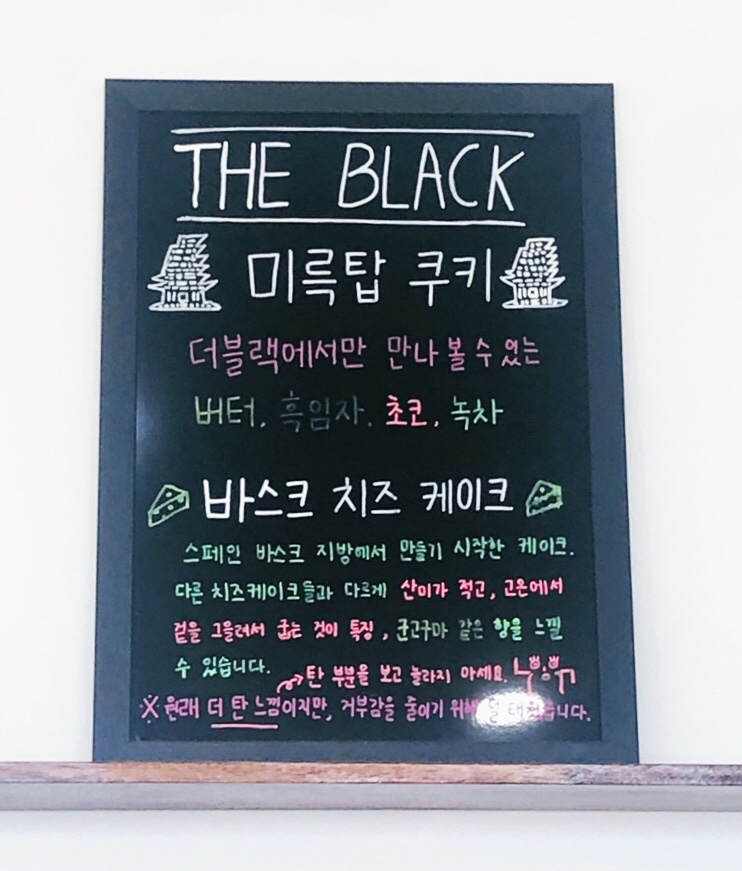 THE BLACK
미륵탑 쿠키
더블랙에서만 만나 볼 수 있는
버터, 흑임자, 초코, 녹차
바스크 치즈 케이크
스페인 바스크 지방에서 만들기 시작한 케이크.
다른 치즈케이크들과 다르게 산미가 적고, 고온에서
겉을 그을려서 굽는 것이 특징, 군고구마 같은 향을 느낄
수 있습니다. 탄 부분을 보고 놀라지 마세요.
※ 원래 더 탄 느낌이지만, 거부감을 줄이기 위해 덜 태웠습니다.